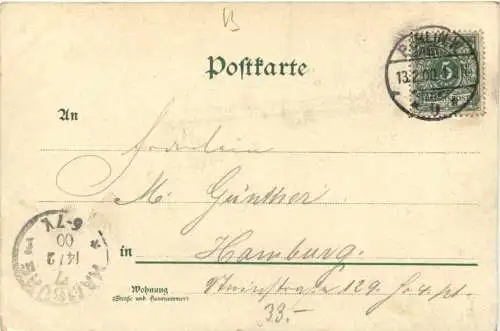 Postkarte
BERLIN, W.
13.2.00.
5
An
Fräulein
M. Günther
in Hamburg.
Wohnung
(Straße und Hausnummer)
129.
33.-
HAMBURG
14/2
00
6-7V.